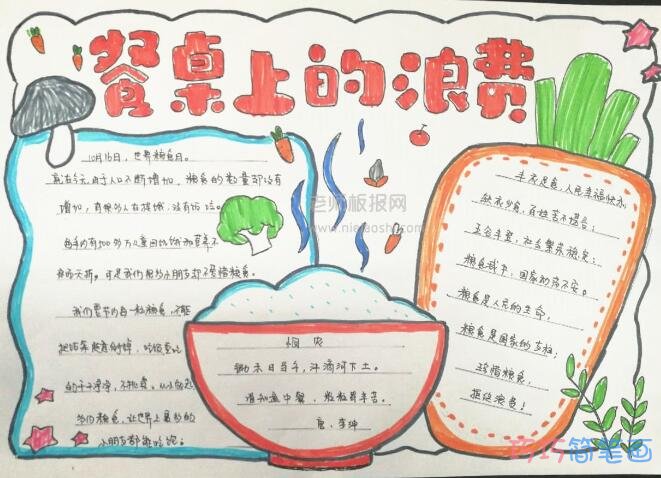 餐桌上的浪费
10月16日，世界粮食日。
现在全球由于人口不断增加，粮食的数量却没有
增加，有很多人在挨饿，没有饭吃。
每年约有500多万儿童因饥饿和营养不
粮食。可是我们很多小朋友却不爱惜粮食。
我们要节约每一粒粮食，不能
把饭菜随意倒掉，吃饭要吃
的干干净净，不挑食。从小
节约粮食，让世界上最多的
小朋友都能吃饱！
悯农
锄禾日当午，汗滴河下土。
谁知盘中餐，粒粒皆辛苦。
唐、李绅
丰衣足食，人民幸福快乐
缺衣少食，百姓苦不堪言；
五谷丰登，社会繁荣稳定；
粮食减少，国家动荡不安。
粮食是人民的生命，
粮食是国家的支柱；
珍惜粮食，
拒绝浪费！
老师板报网
巧巧简笔画